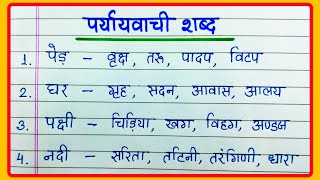 पर्यायवाची शब्द
1. पेड़ – वृक्ष, तरू, पादप, विटप
2. घर – गृह, सदन, आवास, आलय
3. पक्षी – चिड़िया, खग, विहग, अण्डज
4. नदी – सरिता, तटिनी, तरंगिणी, धारा